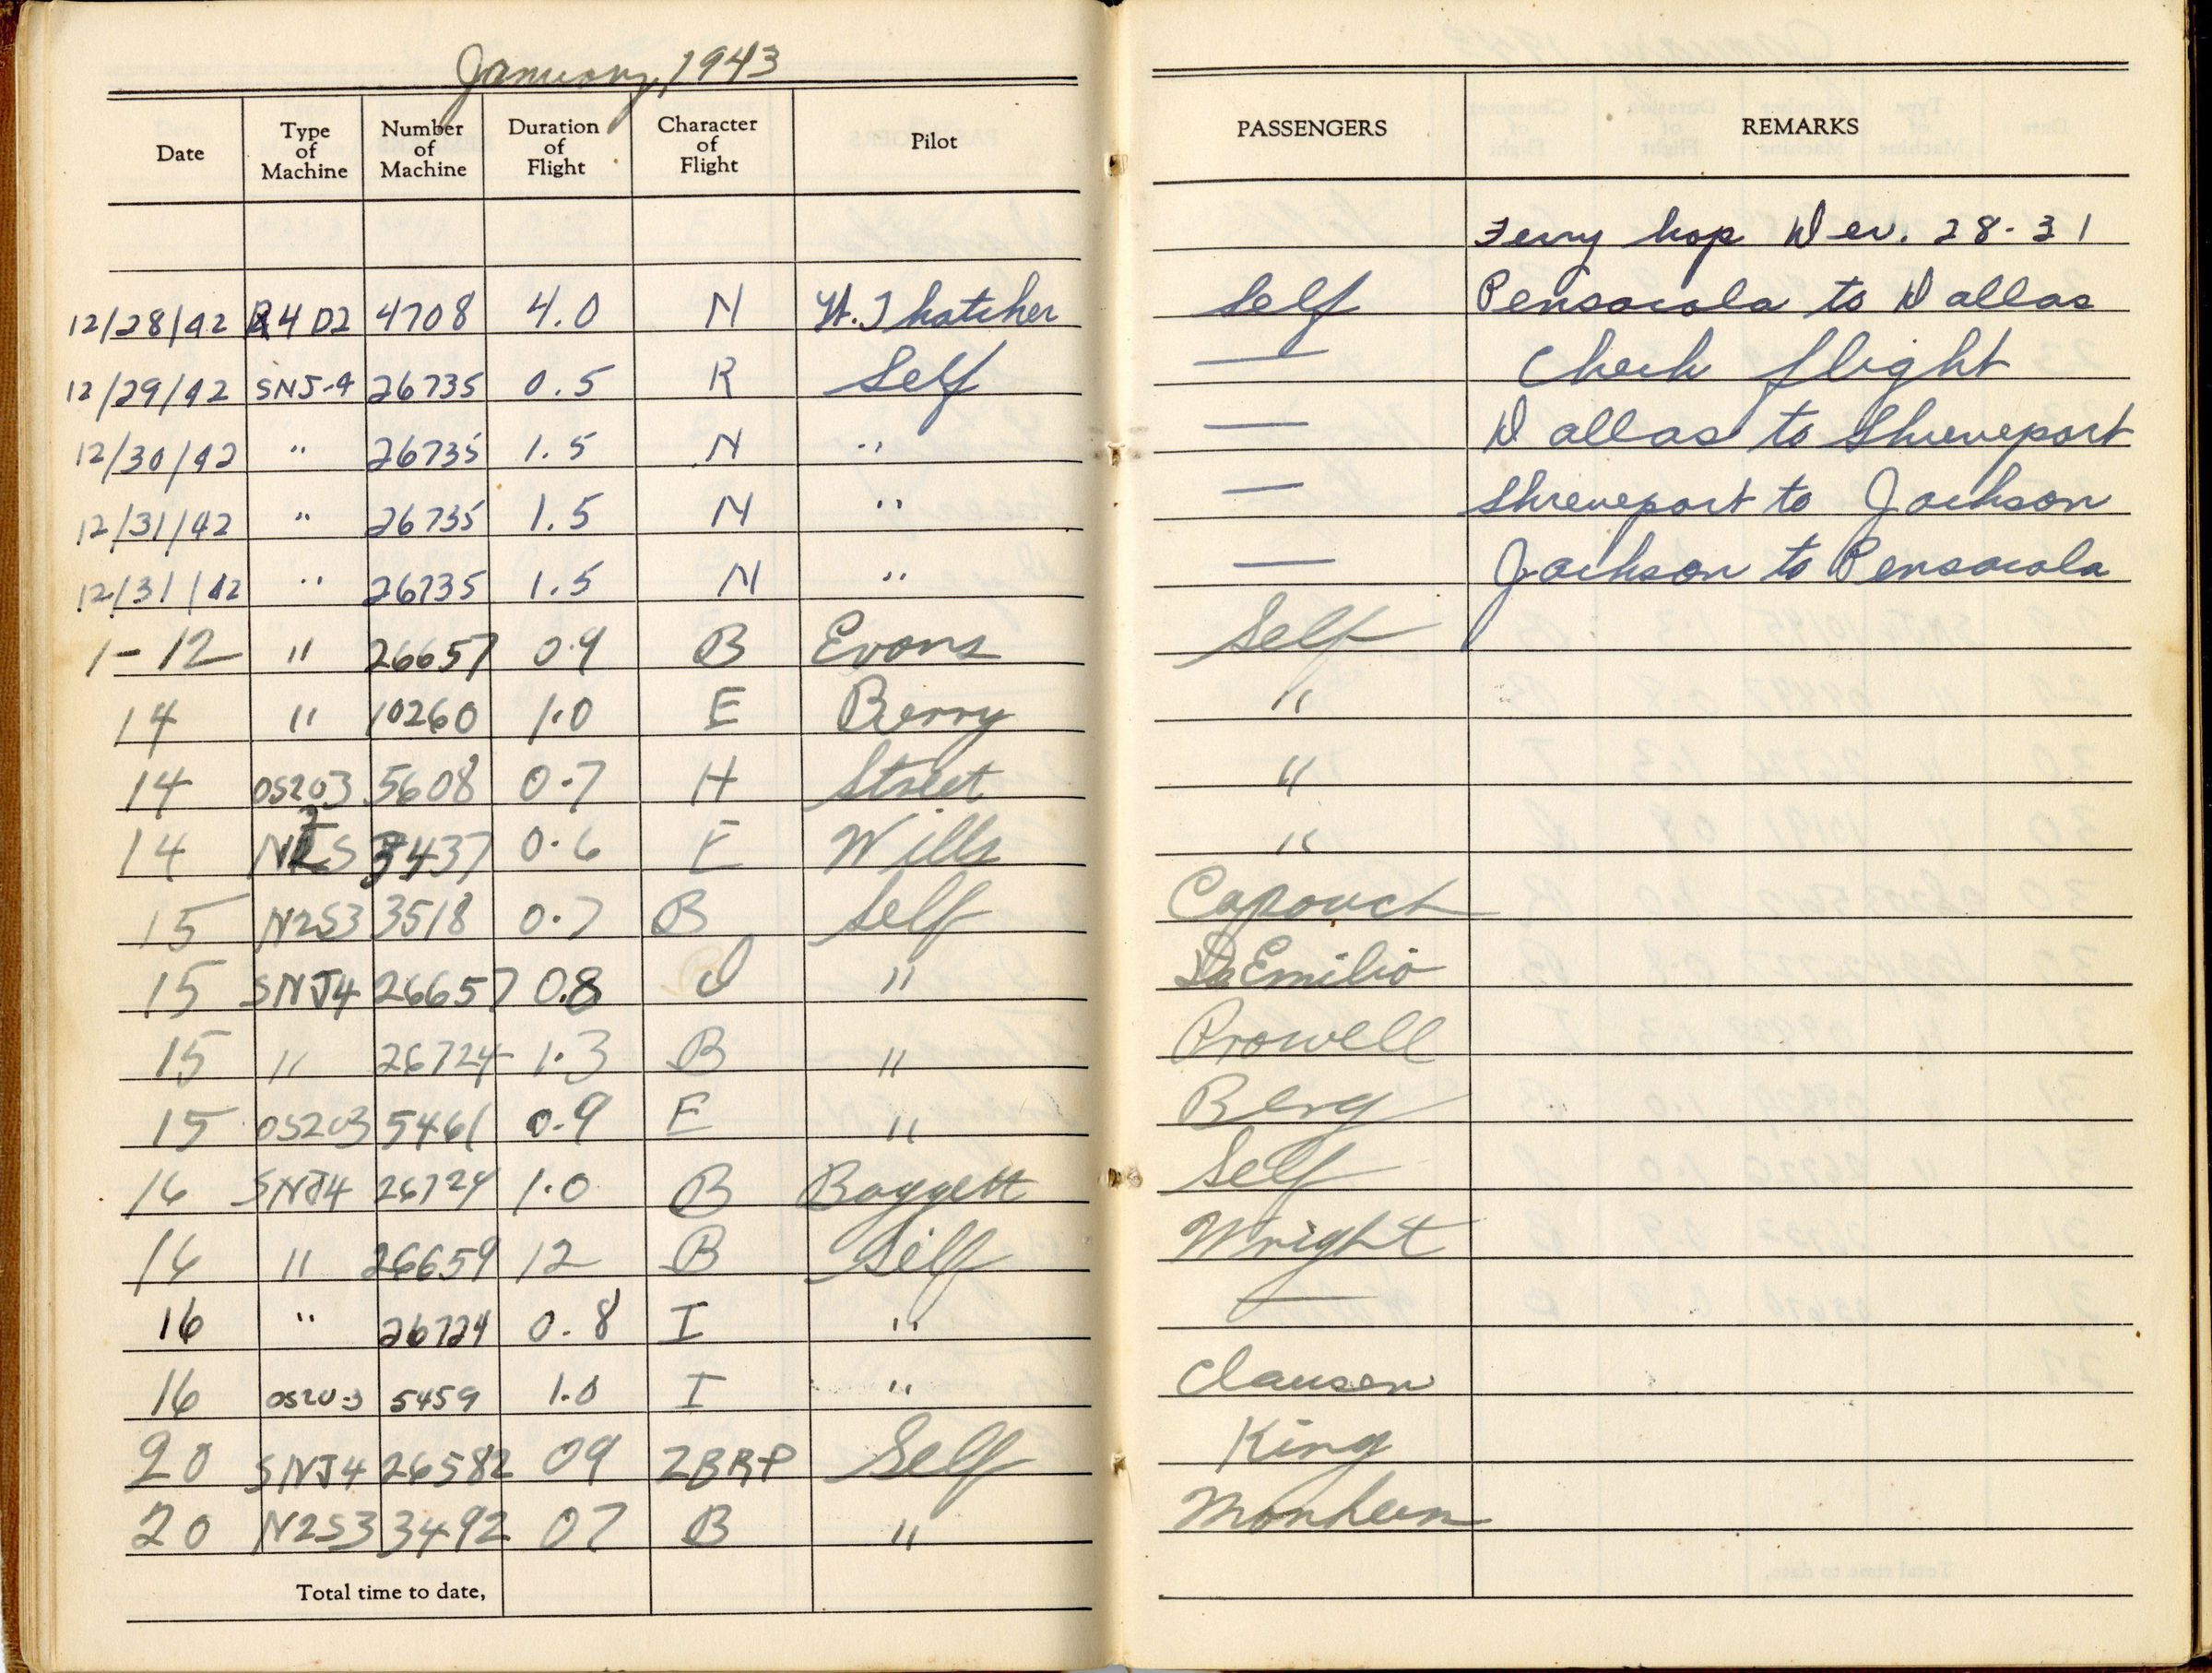 January, 1943
Date Type of Machine Number of Machine Duration of Flight Character of Flight Pilot PASSENGERS REMARKS
Ferry hop Dec. 28-31
12/28/42 R4D2 4708 4.0 N W. Thatcher Self Pensacola to Dallas
12/29/42 SNJ-4 26735 0.5 R Self — Check flight
12/30/42 " 26735 1.5 N " — Dallas to Shreveport
12/31/42 " 26735 1.5 N " — Shreveport to Jackson
12/31/42 " 26735 1.5 N " — Jackson to Pensacola
1-12 " 26657 0.9 B Evans Self
14 " 10260 1.0 E Berry "
14 OS2U3 5608 0.7 H Street "
14 N2S 3437 0.6 E Wills "
15 N2S3 3518 0.7 B Self Capouch
15 SNJ4 26657 0.8 " DaEmilio
15 " 26724 1.3 B " Prowell
15 OS2U3 5461 0.9 E " Berg
16 SNJ4 26724 1.0 B Baggett Self
16 " 26659 12 B Self Wright
16 " 26724 0.8 I " —
16 OS2U-3 5459 1.0 I " Clausen
20 SNJ4 26582 09 ZBRP Self King
20 N2S3 3492 07 B "
Total time to date,